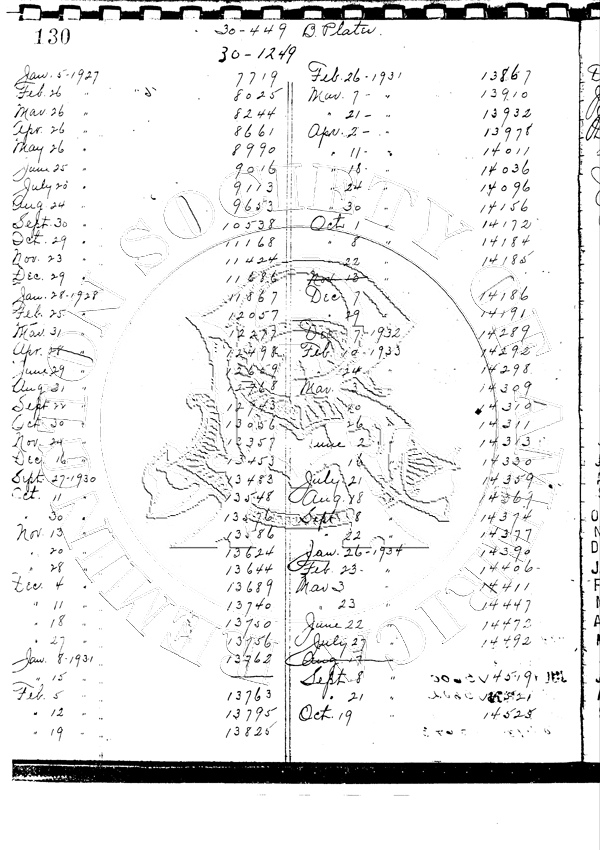 130
30-449 B Plater.
30-1249
Jan. 5-1927 7719
Feb. 26 " 8025
Mar. 26 " 8244
Apr. 26 " 8661
May 26 " 8990
June 25 " 9016
July 20 " 9113
Aug. 24 " 9653
Sept. 30 " 10538
Oct. 29 " 11168
Nov. 23 " 11424
Dec. 29 " 11686
Jan. 28-1928 11867
Feb. 25 " 12057
Mar. 31 " 12277
Apr. 28 " 12498
June 29 " 12629
Aug 31 "
Sept 22 "
Oct. 30 " 13056
Nov. 24 " 13357
Dec. 16 " 13453
Sept. 27-1930 13483
Oct. 11 " 13548
" 30 "
Nov. 13 " 13586
" 20 " 13624
" 28 " 13644
Dec. 4 " 13689
" 11 " 13740
" 18 " 13750
" 27 " 13756
Jan. 8-1931 13762
" 15 "
Feb. 5 " 13763
" 12 " 13795
" 19 " 13825
Feb. 26-1931 13867
Mar. 7 - 13910
" 21 - 13932
Apr. 2 - 13978
" 11 - 14011
" 18 - 14036
" 24 " 14096
" 30 " 14156
Oct. 1 " 14172
" 8 " 14184
" 22 " 14185
Nov. 13 "
Dec. 7 " 14186
" 29 " 14191
Dec. 7-1932 14289
Feb. 10-1933 14292
" 24 " 14298
Mar. 14309
14310
" 26 " 14311
June 2 " 14313
" 16 " 14330
July 21 " 14359
Aug. 18 "
Sept. 8 " 14374
" 22 " 14377
Jan. 26-1934 14390
Feb. 23 - 14406
Mar 3 14411
" 23 " 14447
June 22 " 14472
July 27 " 14492
Aug 17
Sept. 8 " 14519
" 21 "
Oct. 19 " 14525
AMERICAN SOCIETY